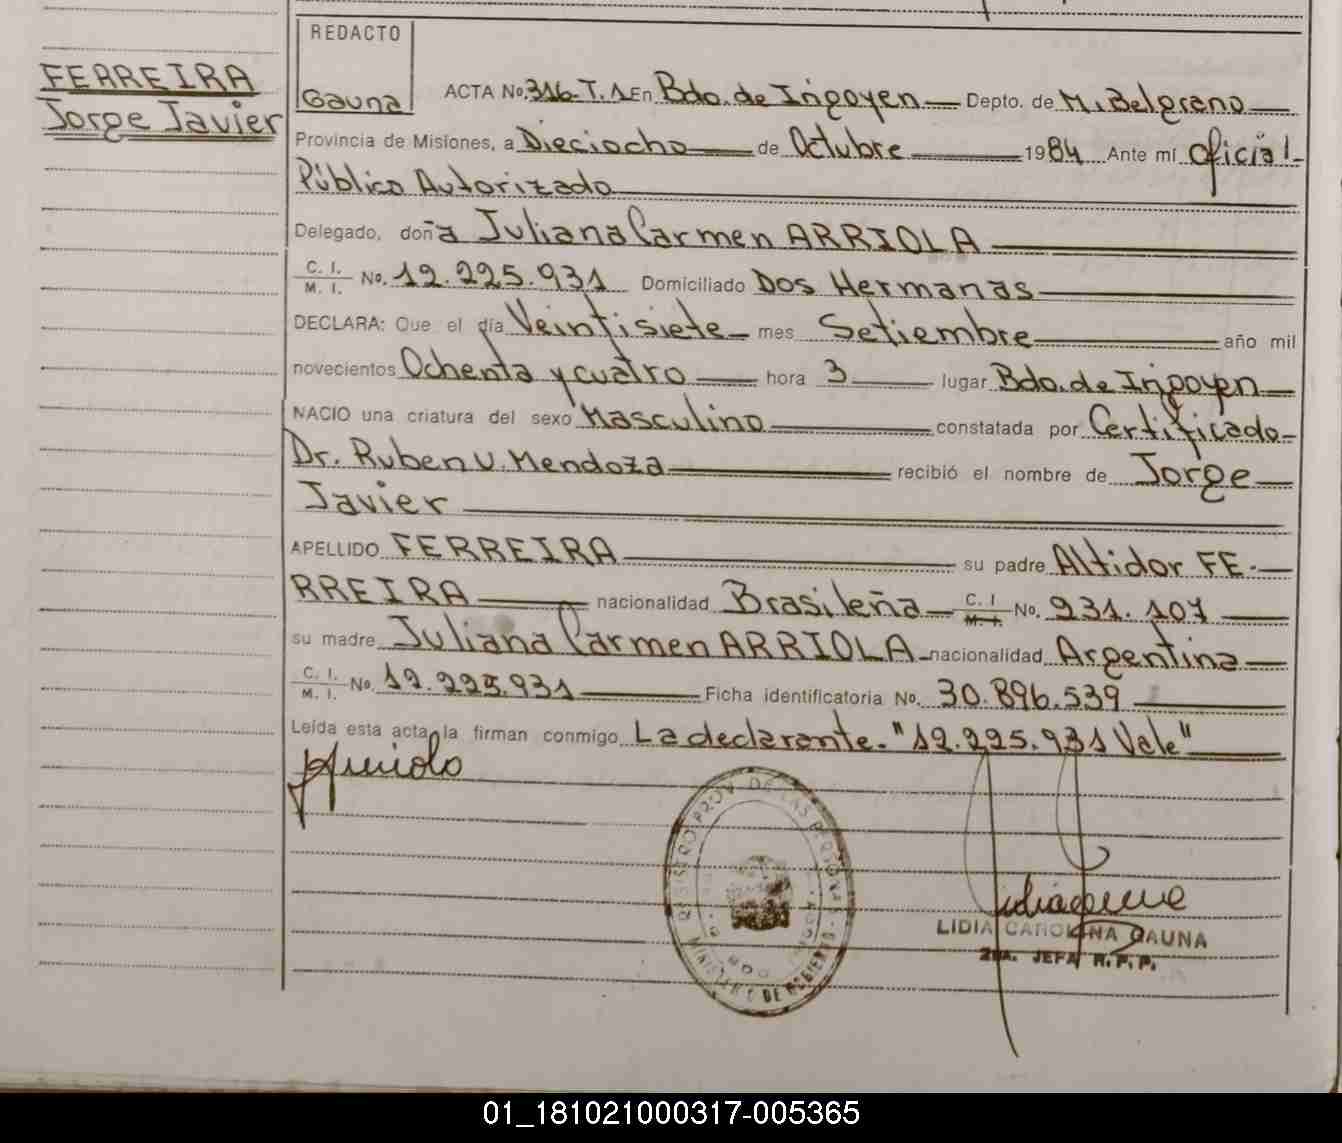 FERREIRA
Jorge Javier
REDACTO
Gauna
ACTA No. 316-T.1 En Bdo. de Irigoyen Depto. de M. Belgrano
Provincia de Misiones, a Dieciocho de Octubre 1984 Ante mí Oficial
Público Autorizado
Delegado, doña Juliana Carmen ARRIOLA
C. I. M. I. No. 12.225.931 Domiciliado Dos Hermanas
DECLARA: Que el día Veintisiete mes Setiembre año mil
novecientos Ochenta y cuatro hora 3 lugar Bdo. de Irigoyen
NACIO una criatura del sexo Masculino constatada por Certificado
Dr. Ruben V. Mendoza recibió el nombre de Jorge
Javier
APELLIDO FERREIRA su padre Altidor FE-
RREIRA nacionalidad Brasileña C. I M. I. No. 931.107
su madre Juliana Carmen ARRIOLA nacionalidad Argentina
C. I. M. I. No. 12.225.931 Ficha identificatoria No. 30.896.539
Leída esta acta, la firman conmigo La declarante. "12.225.931 Vale"
LIDIA CAROLINA GAUNA
2da. JEFA R.P.P.
01_181021000317-005365